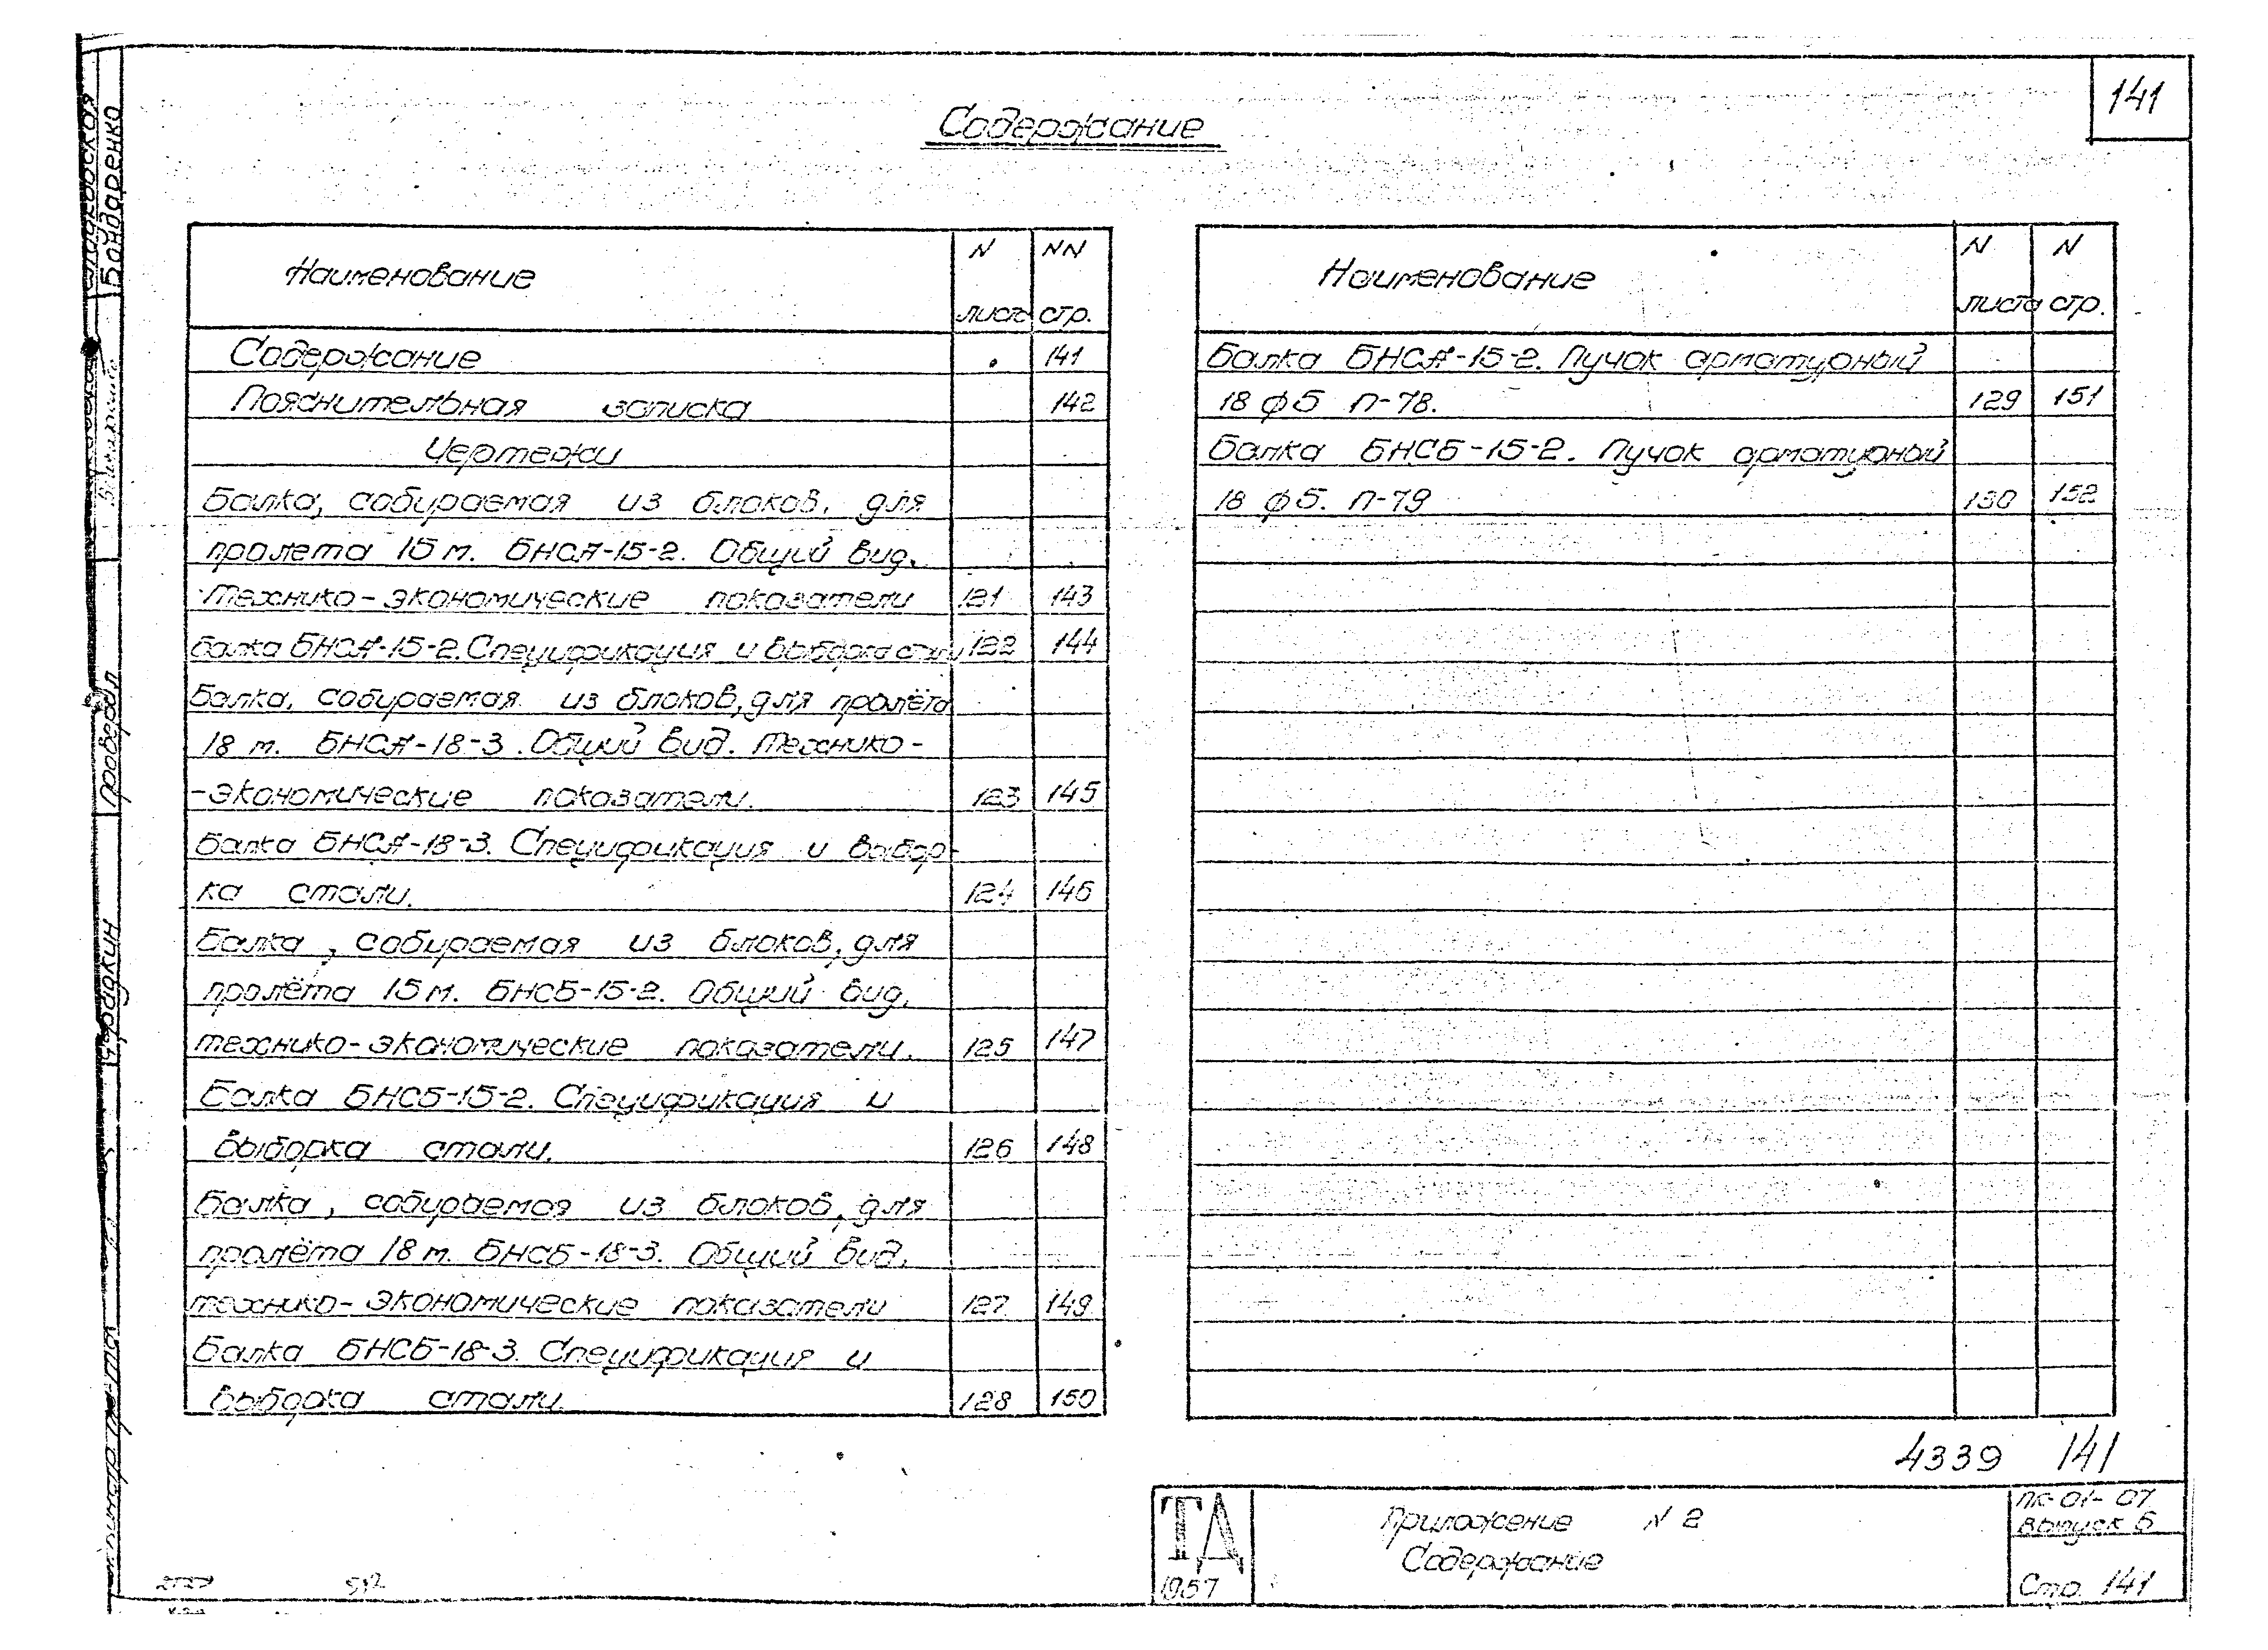 141
Содержание
Наименование N листа NN стр.
Содержание 141
Пояснительная записка 142
Чертежи
Балка, собираемая из блоков, для
пролета 15 м. БНСА-15-2. Общий вид.
Технико-экономические показатели 121 143
Балка БНСА-15-2. Спецификация и выборка стали 122 144
Балка, собираемая из блоков, для пролёта
18 м. БНСА-18-3. Общий вид. Технико-
-экономические показатели. 123 145
Балка БНСА-18-3. Спецификация и выбор-
ка стали. 124 146
Балка, собираемая из блоков, для
пролёта 15 м. БНСБ-15-2. Общий вид.
технико-экономические показатели. 125 147
Балка БНСБ-15-2. Спецификация и
выборка стали. 126 148
Балка, собираемая из блоков, для
пролёта 18 м. БНСБ-18-3. Общий вид.
технико-экономические показатели 127 149
Балка БНСБ-18-3. Спецификация и
выборка стали. 128 150
Наименование N листа N стр.
Балка БНСА-15-2. Пучок арматурный
18 ф5 П-78. 129 151
Балка БНСБ-15-2. Пучок арматурный
18 ф5. П-79 130 152
4339 141
ТД
1957
Приложение N 2
Содержание
ПК-01-07
Выпуск 6
Стр. 141
Бондаренко
проверил